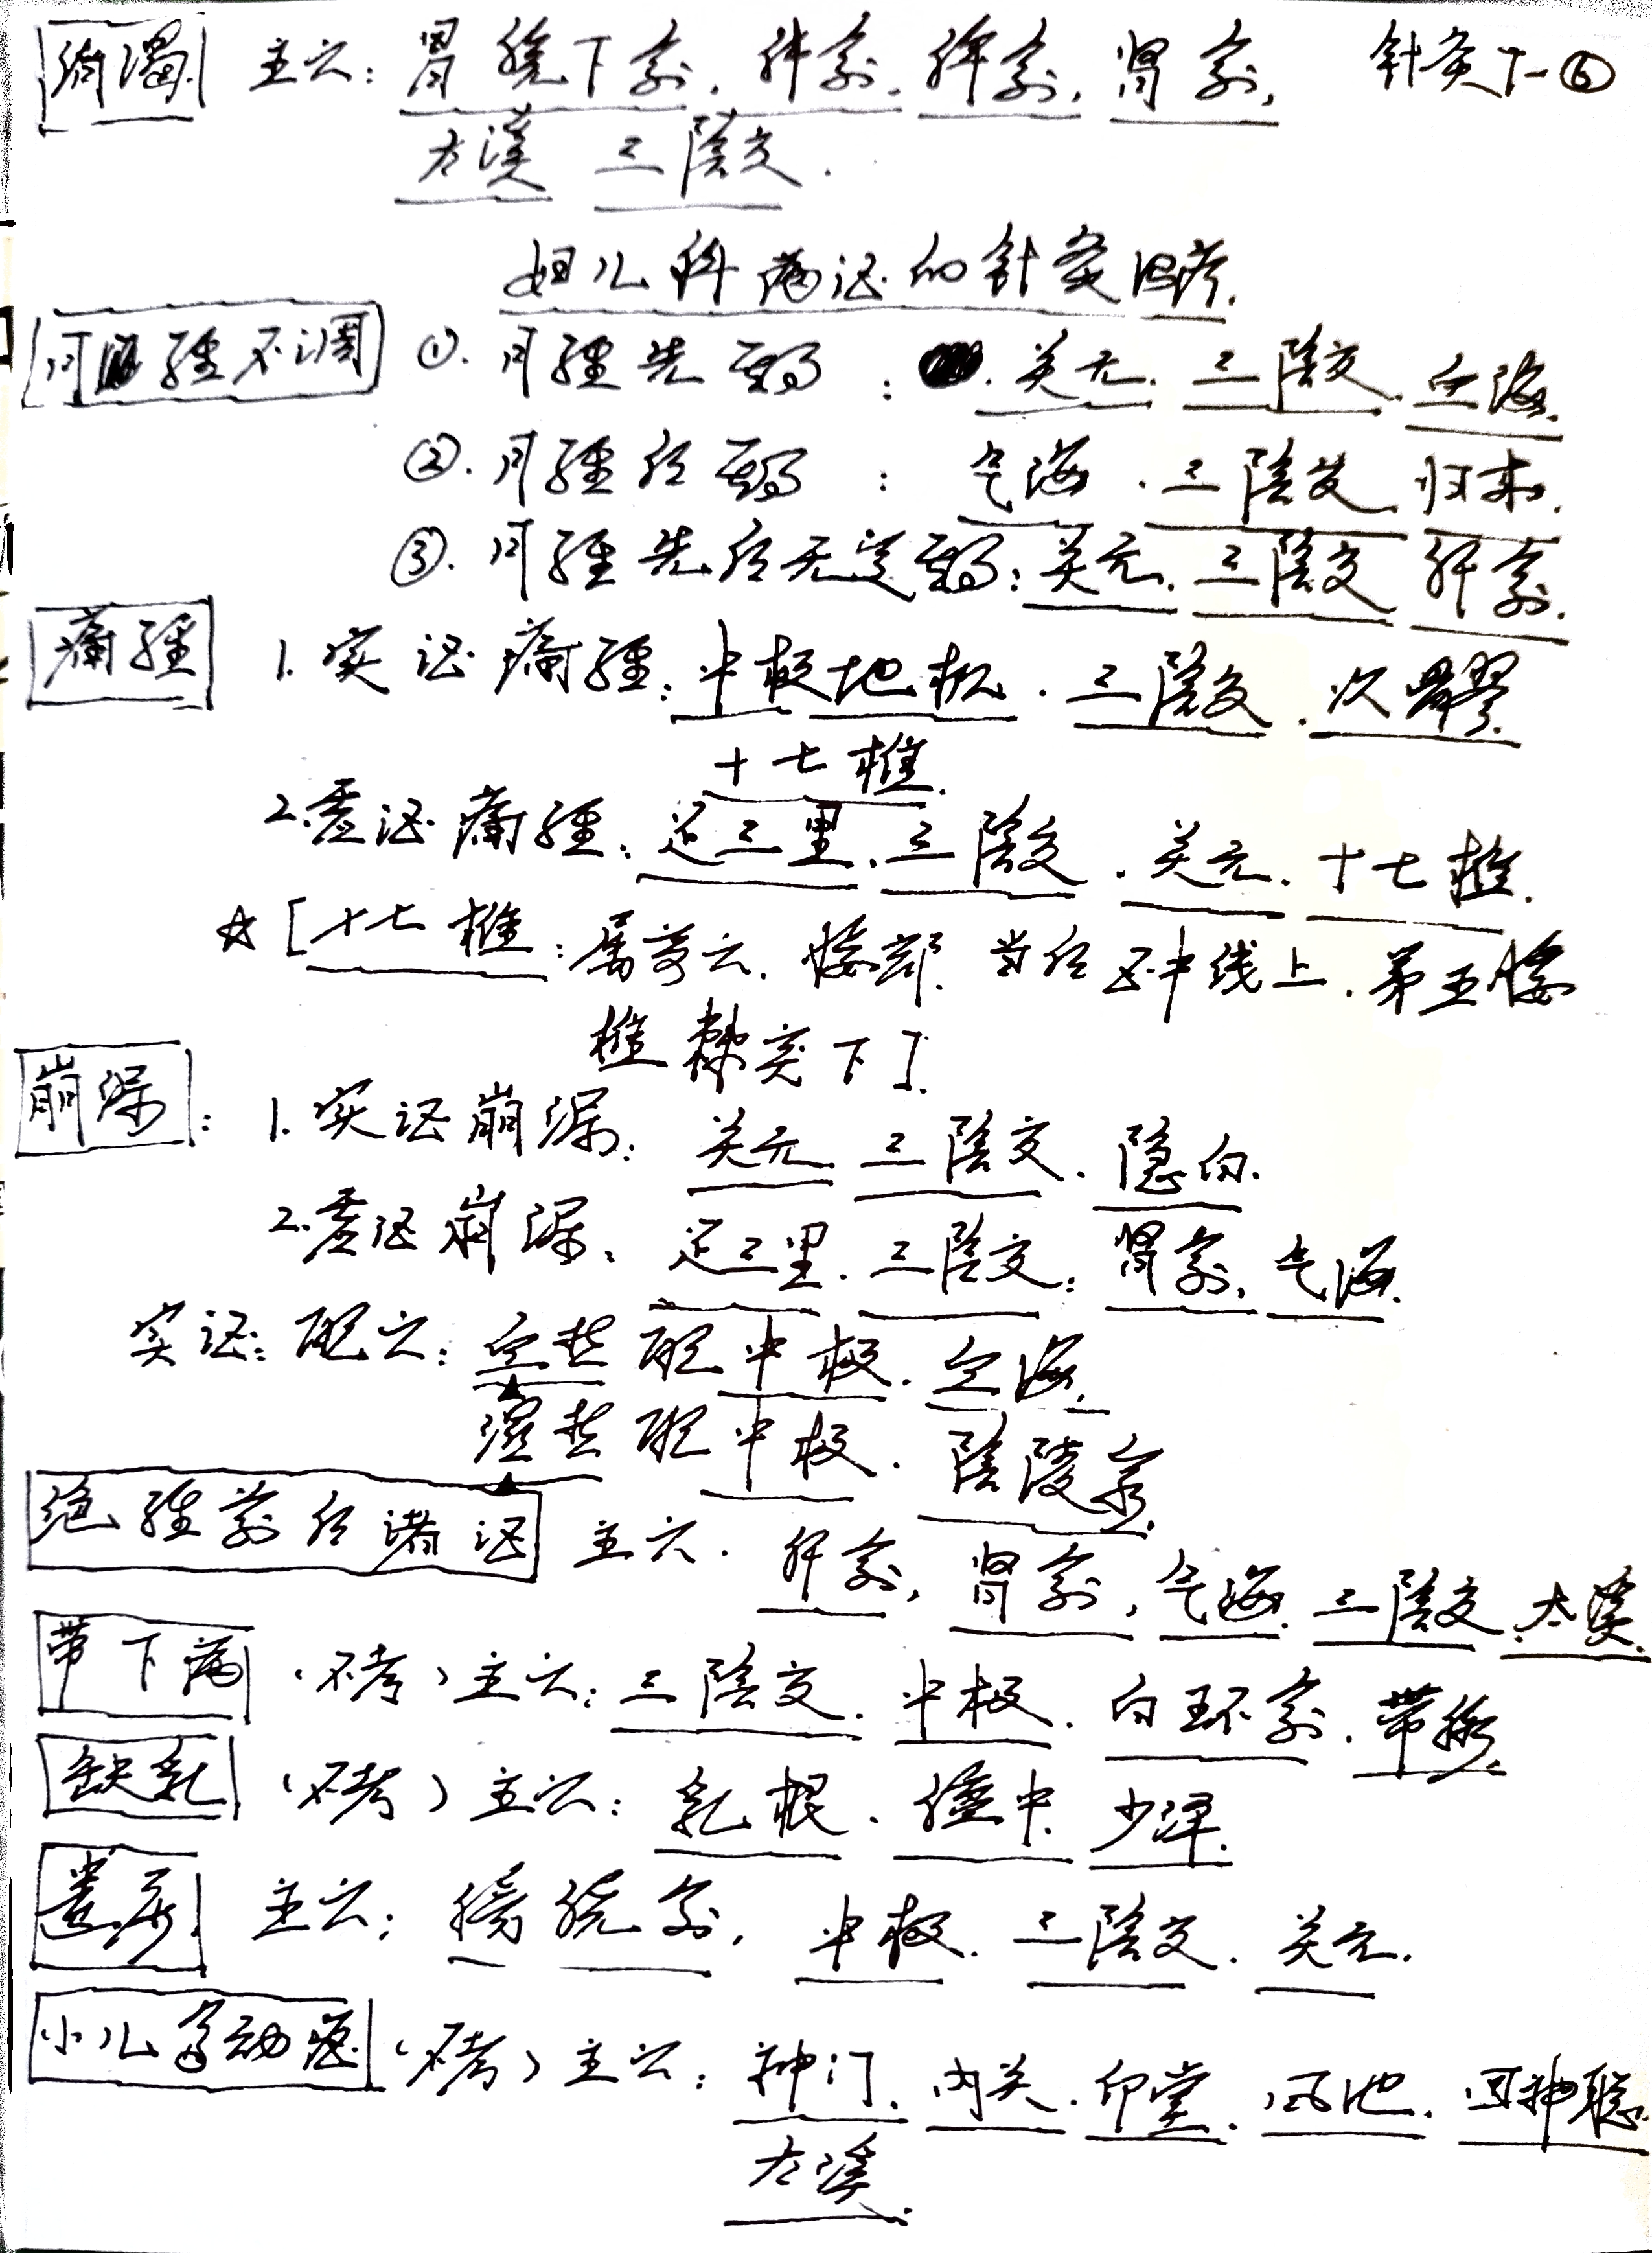 消渴 主穴：胃脘下俞．肝俞．脾俞．肾俞． 针灸下-⑥
太溪 三陰交．
妇儿科病证的针灸治疗．
月經不调 ①．月經先期：关元．三陰交．血海．
②．月經后期：气海．三陰交．归来．
③．月經先后无定期：关元．三陰交 肝俞．
痛經 1．实证痛經：中极 地机．三陰交．次髎．
十七椎．
2．虚证痛經：足三里．三陰交．关元．十七椎．
☆［十七椎：属奇穴．腰部．当后正中线上．第五腰
椎棘突下］．
崩漏：1．实证崩漏：关元 三陰交．隐白．
2．虚证崩漏：足三里．三陰交．肾俞．气海．
实证：配穴：血热配中极．血海．
湿热配中极．陰陵泉．
绝经前后诸证 主穴．肝俞，肾俞，气海．三陰交 太溪．
带下病（不考）主穴：三陰交．中极．白环俞．带脉．
缺乳（不考）主穴：乳根．膻中．少泽．
遗尿 主穴：膀胱俞．中极．三陰交．关元．
小儿多动症（不考）主穴：神门．内关．印堂．风池．四神聪．
太溪．